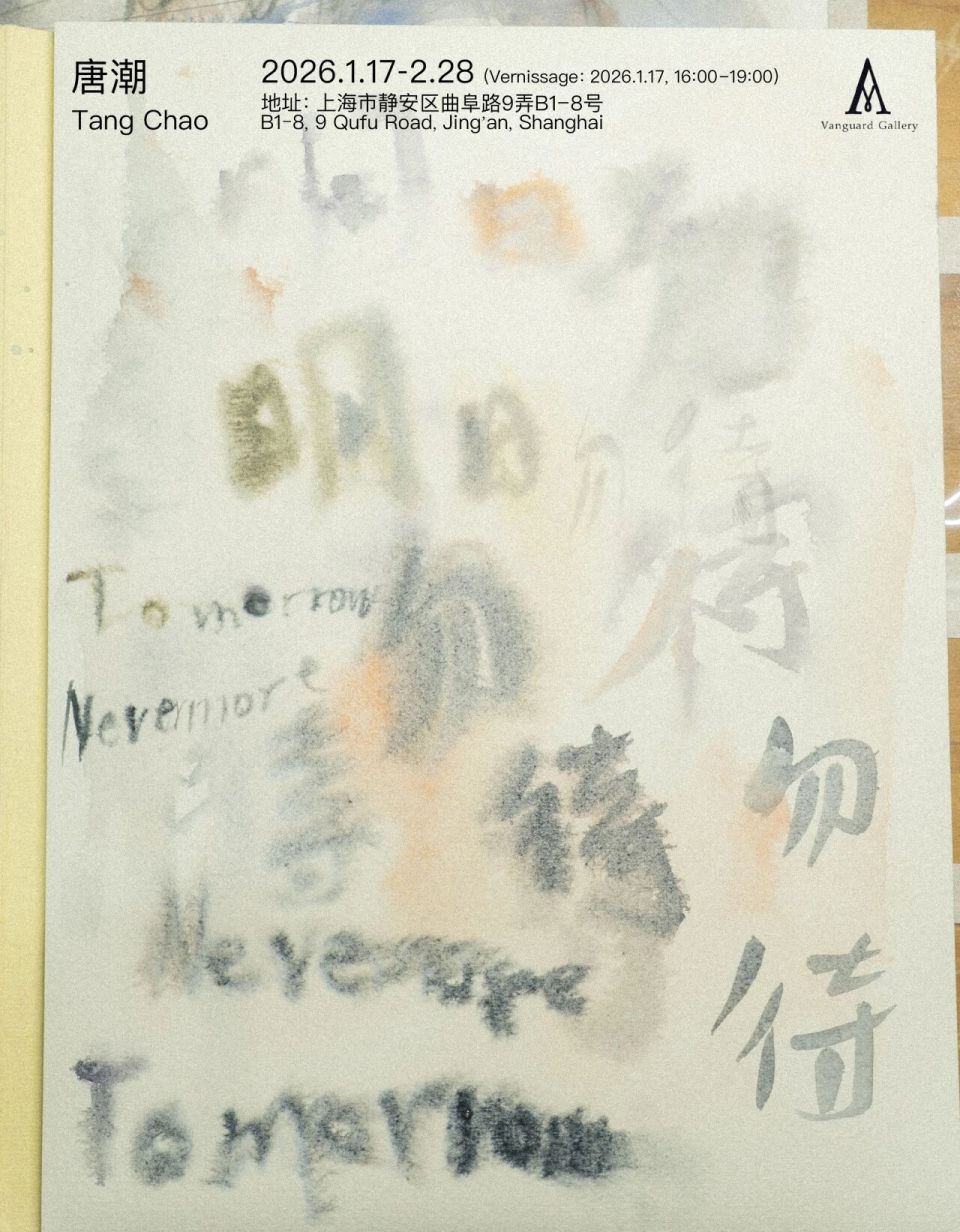 唐潮
Tang Chao
2026.1.17-2.28 (Vernissage: 2026.1.17, 16:00-19:00)
地址: 上海市静安区曲阜路9弄B1-8号
B1-8, 9 Qufu Road, Jing'an, Shanghai
Vanguard Gallery
明日
勿待
Tomorrow
Nevermore
勿待
勿待
Nevermore
Tomorrow